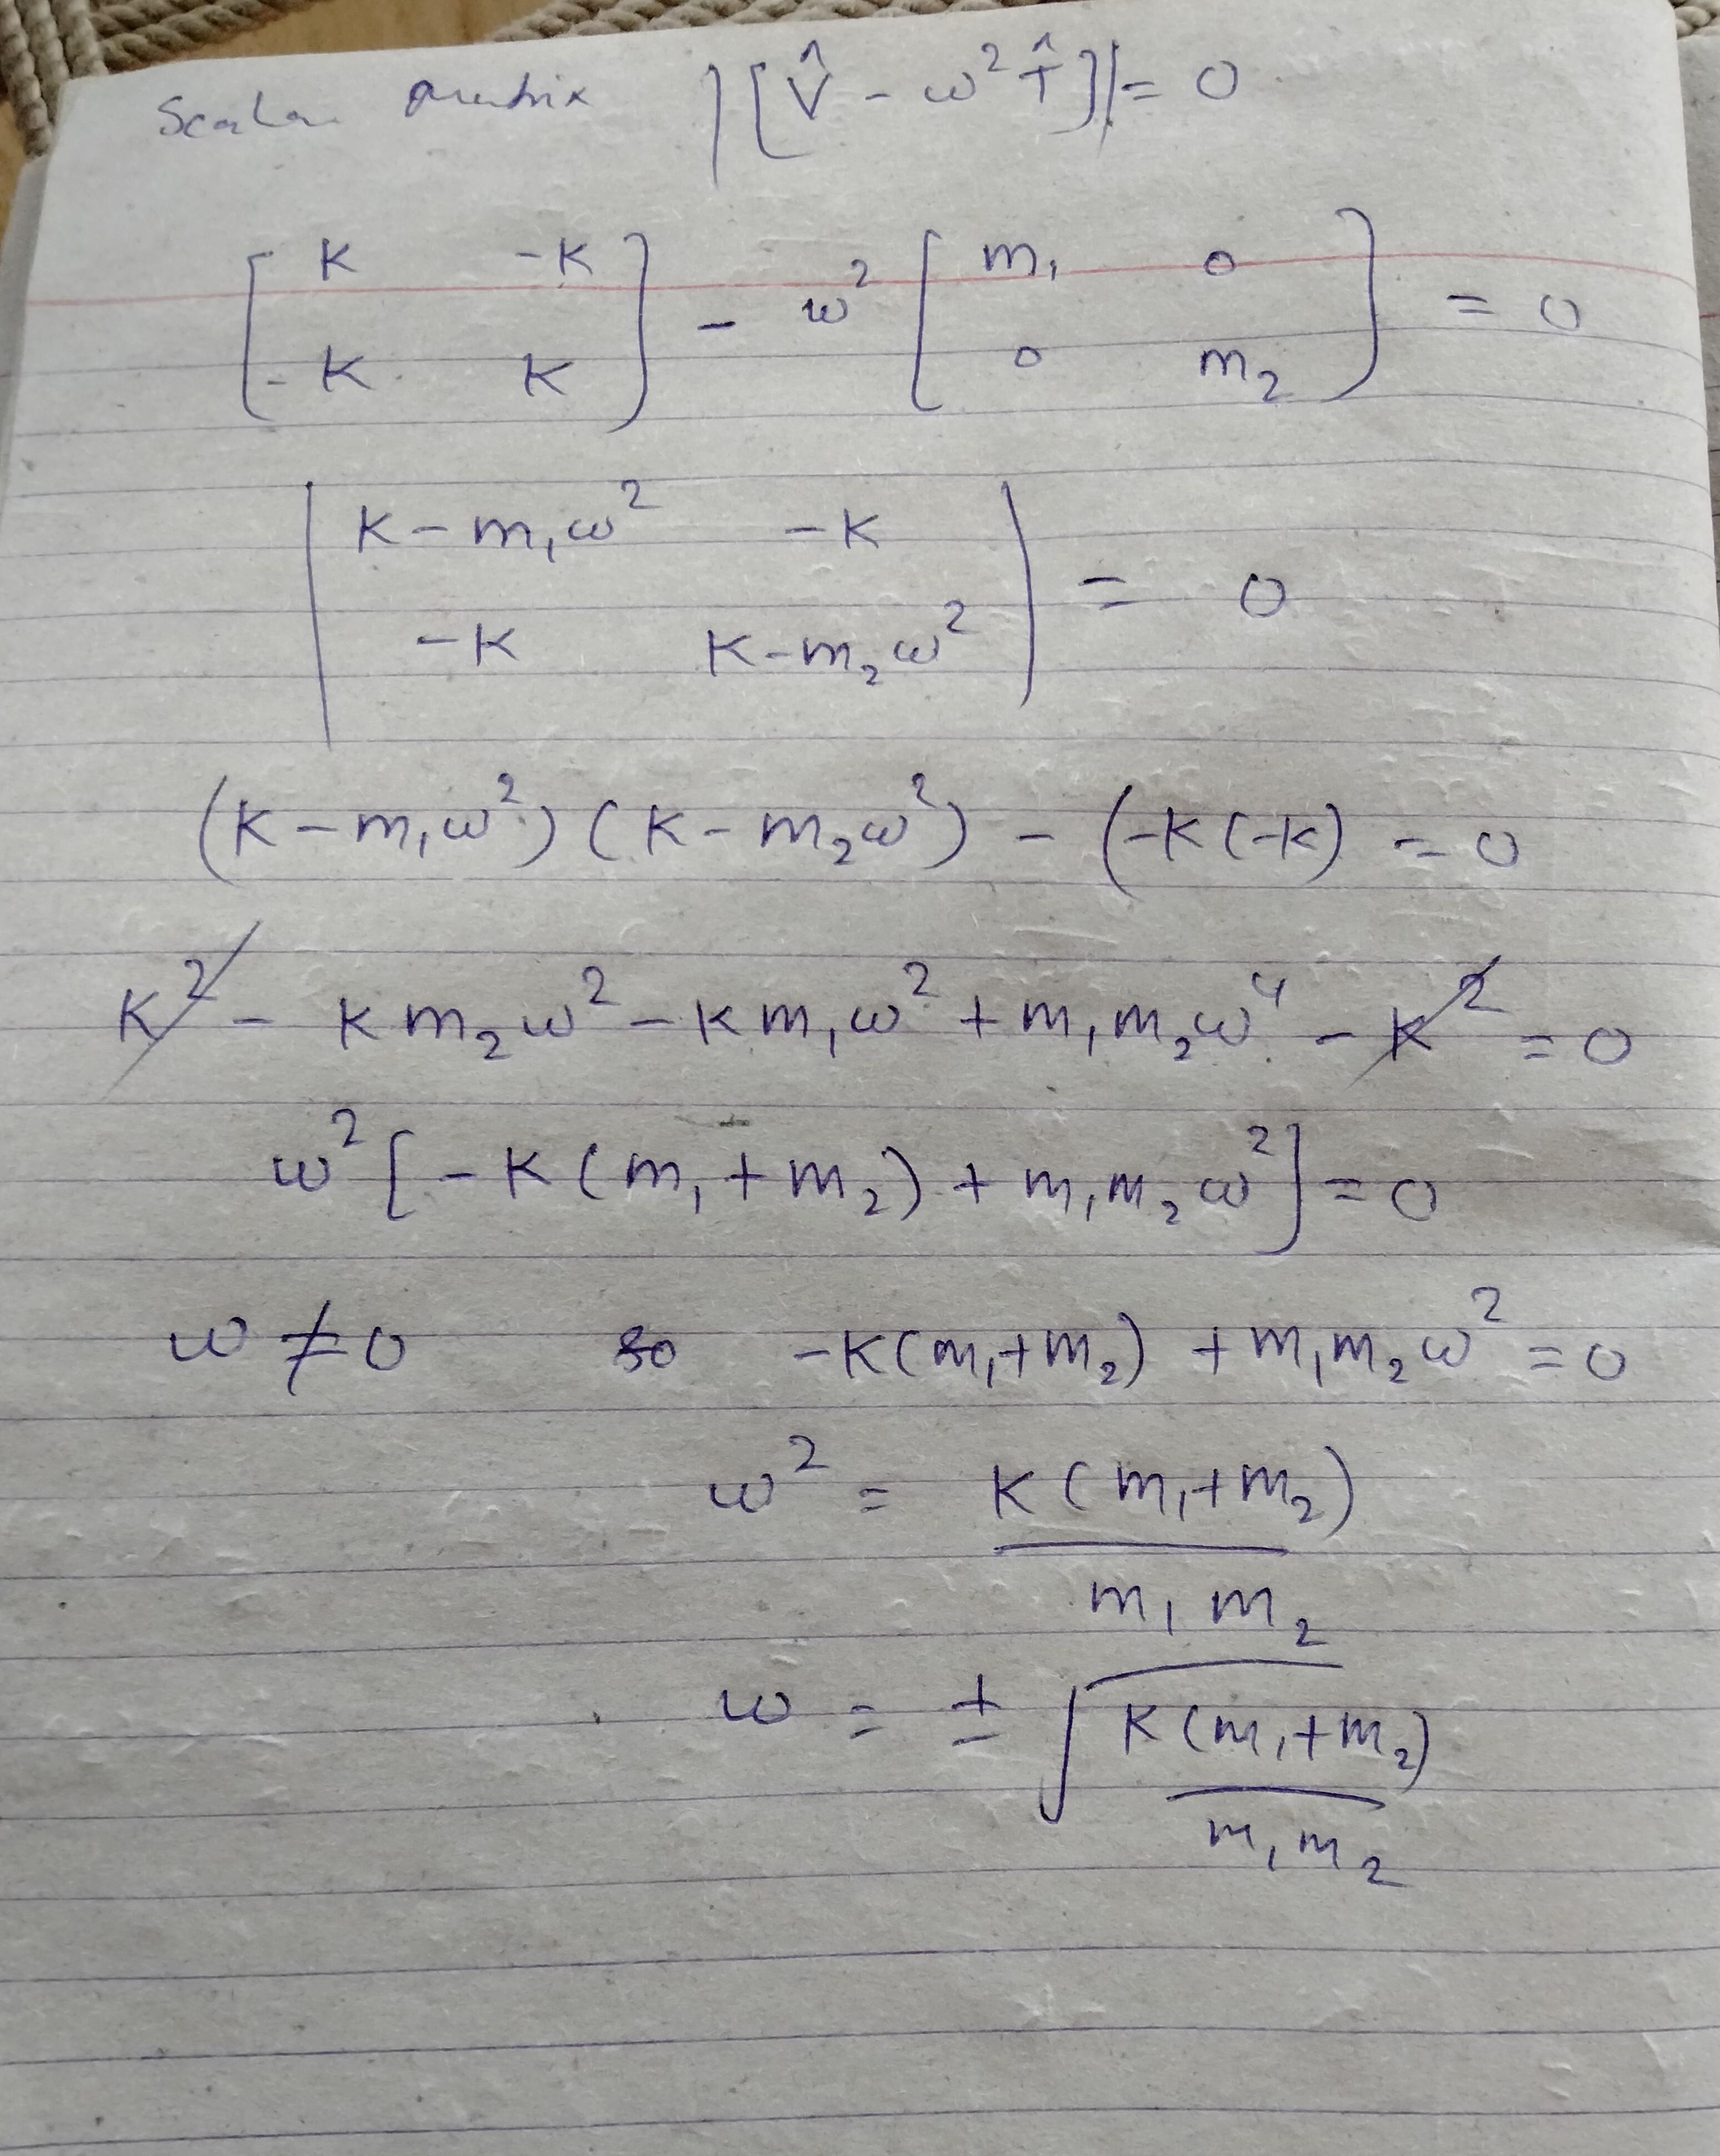 Scalar matrix |[V̂ - ω² T̂]| = 0
[K -K; -K K] - ω² [m₁ 0; 0 m₂] = 0
|K - m₁ω² -K; -K K - m₂ω²| = 0
(K - m₁ω²) (K - m₂ω²) - (-K(-K) = 0
K² - K m₂ω² - K m₁ω² + m₁m₂ω⁴ - K² = 0
ω² [-K (m₁ + m₂) + m₁m₂ω²] = 0
ω ≠ 0 so -K(m₁+m₂) + m₁m₂ω² = 0
ω² = K (m₁+m₂) / m₁ m₂
ω = ± √(K (m₁+m₂) / m₁ m₂)